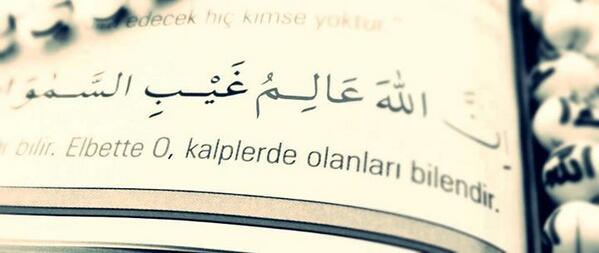 edecek hiç kimse yoktur."
إِنَّ اللّٰهَ عَالِمُ غَيْبِ السَّمٰوَا
bilir. Elbette O, kalplerde olanları bilendir.
الله